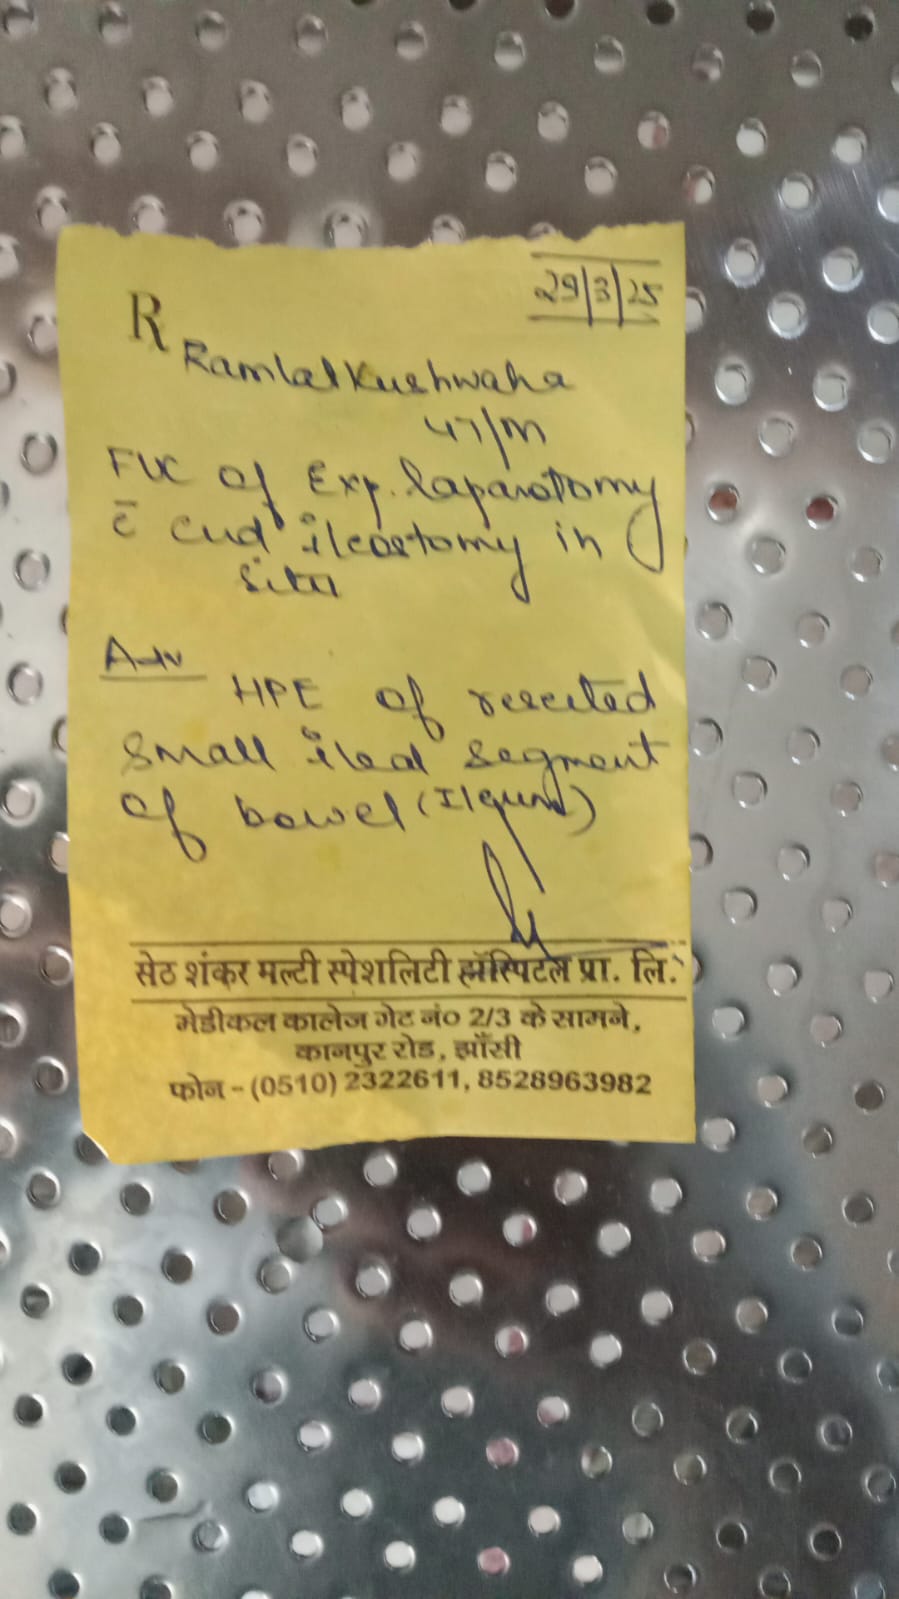 29/3/25
R
Ramlal Kushwaha
47/M
FUC of Exp. laparotomy
c̄ end ileostomy in
situ
Adv
HPE of resected
small ileal segment
of bowel (Ileum)
सेठ शंकर मल्टी स्पेशलिटी हॉस्पिटल प्रा. लि.
मेडीकल कालेज गेट नं० 2/3 के सामने,
कानपुर रोड, झाँसी
फोन - (0510) 2322611, 8528963982